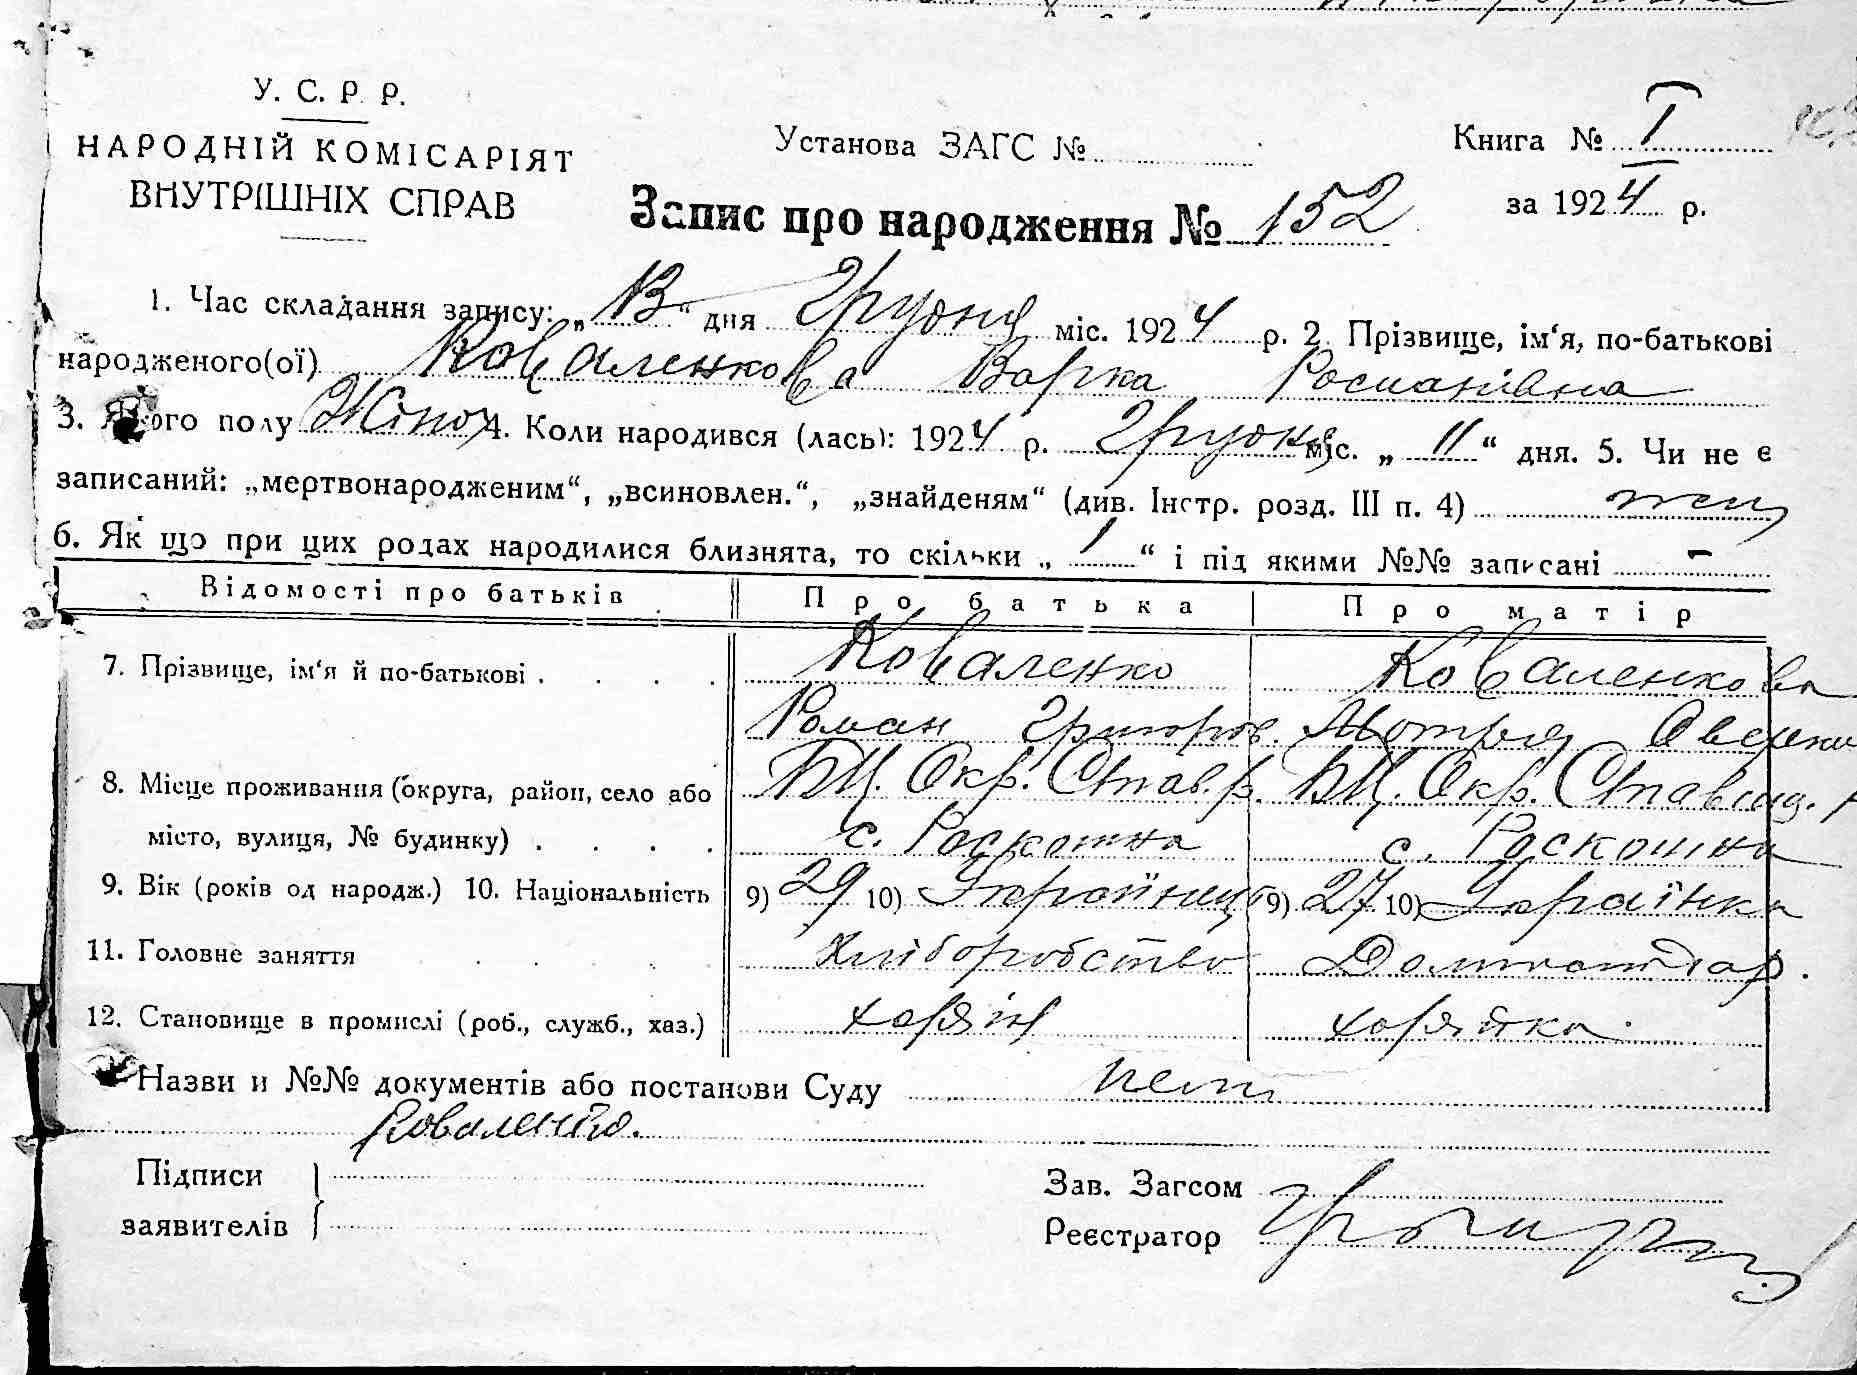 У. С. Р. Р.
НАРОДНІЙ КОМІСАРІЯТ
ВНУТРІШНІХ СПРАВ
Установа ЗАГС №
Книга № I
за 1924 р.
Запис про народження № 152
1. Час складання запису: „13“ дня Грудня міс. 1924 р. 2. Прізвище, ім‘я, по-батькові
народженого(ої) Коваленкова Варка Романівна
3. Якого полу Жіноч 4. Коли народився (лась): 1924 р. Грудня міс. „11“ дня. 5. Чи не є
записаний: „мертвонародженим“, „всиновлен.“, „знайденям“ (див. Інстр. розд. III п. 4)
6. Як що при цих родах народилися близнята, то скільки „1“ і під якими №№ записані —
Відомості про батьків Про батька Про матір
7. Прізвище, ім‘я й по-батькові . . . . Коваленко Коваленкова
Роман Григоров. Мотря Оверки
8. Місце проживання (округа, район, село або БЦ. Окр. Став. р. БЦ. Окр. Ставищ. р
місто, вулиця, № будинку) . . . . с. Роскошна с. Роскошна
9. Вік (років од народж.) 10. Національність 9) 29 10) Українець 9) 27 10) Українка
11. Головне заняття . . . . хліборобство Домгоспдар.
12. Становище в промислі (роб., служб., хаз.) хазяїн хазяйка.
Назви и №№ документів або постанови Суду нет
Коваленко.
Підписи
заявителів
Зав. Загсом
Реєстратор